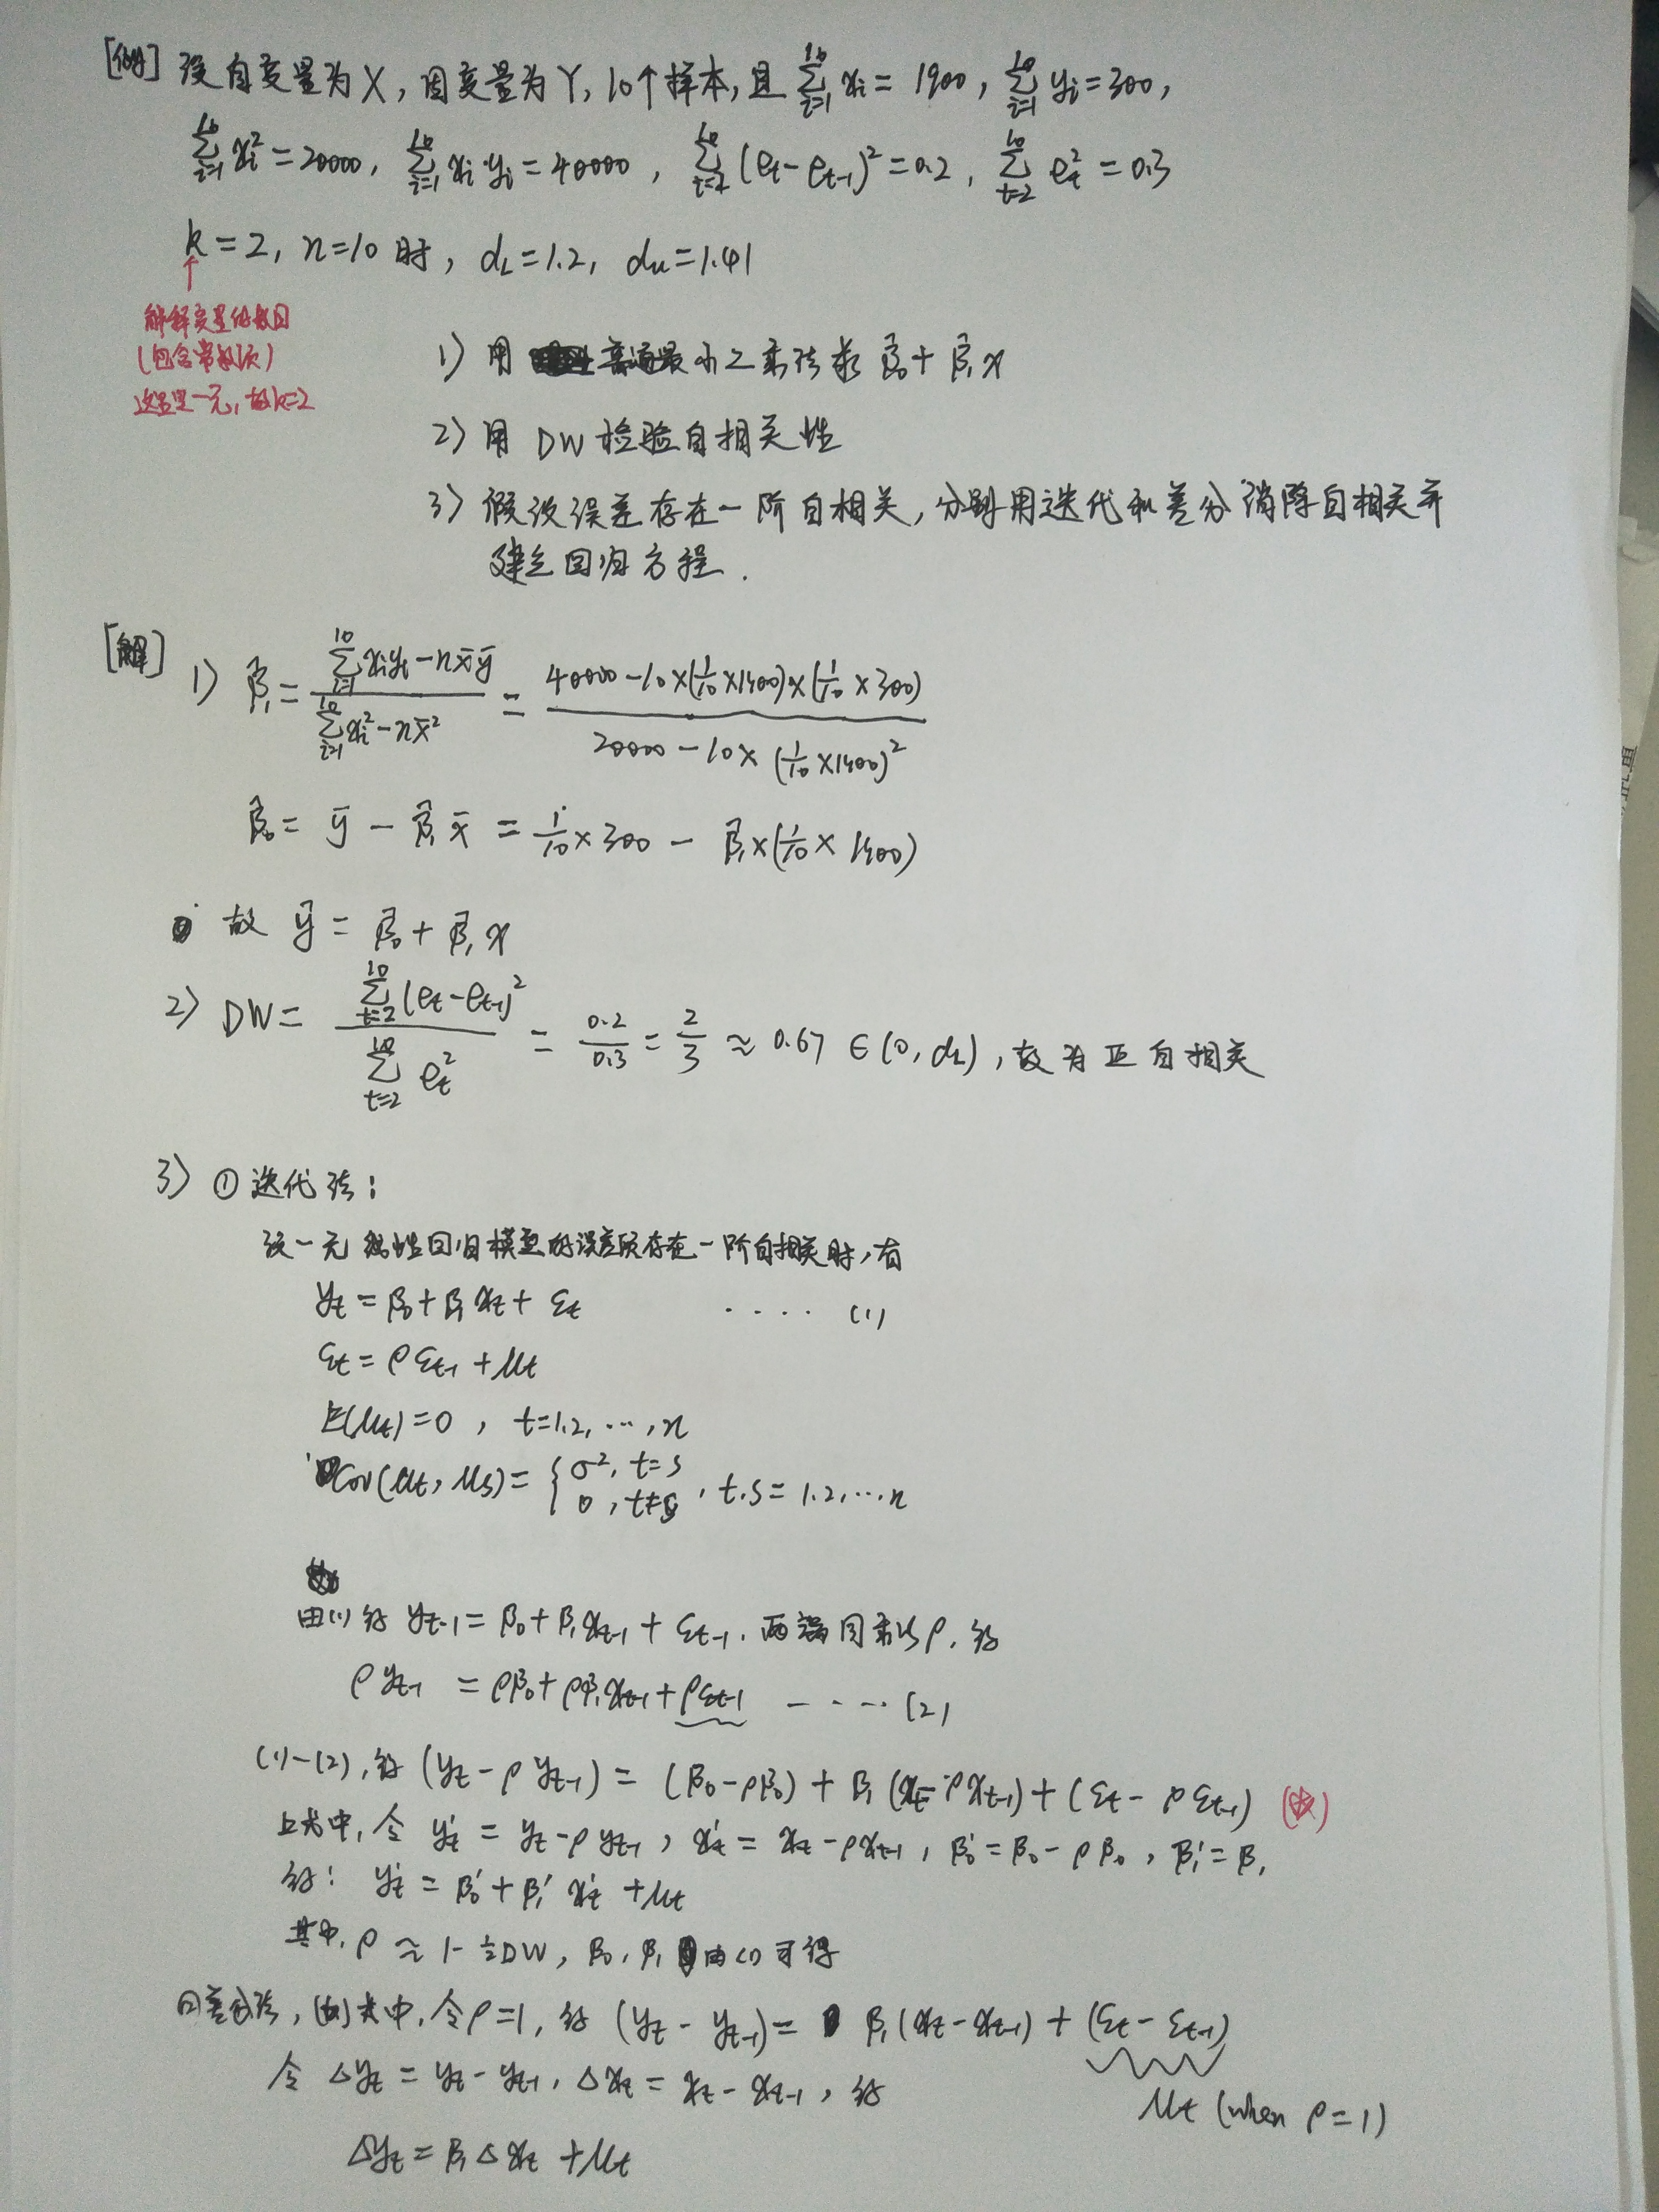 [例] 设自变量为X，因变量为Y，10个样本，且 ∑_{i=1}^{10} x_i = 1900，∑_{i=1}^{10} y_i = 300，
∑_{i=1}^{10} x_i² = 20000，∑_{i=1}^{10} x_i y_i = 40000，∑_{t=2}^{10} (e_t - e_{t-1})² = 0.2，∑_{t=2}^{10} e_t² = 0.3
k = 2，n = 10 时，d_L = 1.2，d_u = 1.41
↑
解释变量的数目
(包含常数项)
这里是一元，故k=2
1) 用普通最小二乘法求 β̂₀ + β̂₁x
2) 用 DW 检验自相关性
3) 假设误差存在一阶自相关，分别用迭代和差分消除自相关并
建立回归方程.
[解] 1) β̂₁ = (∑_{i=1}^{10} x_i y_i - n x̄ ȳ) / (∑_{i=1}^{10} x_i² - n x̄²) = (40000 - 10×(1/10×1900)×(1/10×300)) / (20000 - 10×(1/10×1900)²)
β̂₀ = ȳ - β̂₁ x̄ = 1/10×300 - β̂₁×(1/10×1900)
故 ŷ = β̂₀ + β̂₁ x
2) DW = ∑_{t=2}^{10} (e_t - e_{t-1})² / ∑_{t=2}^{10} e_t² = 0.2/0.3 = 2/3 ≈ 0.67 ∈ (0, d_L)，故为正自相关
3) ① 迭代法：
设一元线性回归模型的误差项存在一阶自相关时，有
y_t = β₀ + β₁ x_t + ε_t ···· (1)
ε_t = ρ ε_{t-1} + μ_t
E(μ_t) = 0，t = 1.2, ···, n
Cov(μ_t, μ_s) = { σ², t=s ; 0, t≠s，t.s = 1.2, ··· n
由(1)得 y_{t-1} = β₀ + β₁x_{t-1} + ε_{t-1}. 两端同乘以ρ，得
ρ y_{t-1} = ρβ₀ + ρβ₁x_{t-1} + ρε_{t-1} ····· (2)
(1)-(2)，得 (y_t - ρ y_{t-1}) = (β₀ - ρβ₀) + β₁ (x_t - ρx_{t-1}) + (ε_t - ρ ε_{t-1}) (☆)
上式中，令 y_t' = y_t - ρ y_{t-1}，x_t' = x_t - ρx_{t-1}，β₀' = β₀ - ρβ₀，β₁' = β₁
得： y_t' = β₀' + β₁' x_t' + μ_t
其中，ρ ≈ 1 - ½DW，β₀，β₁ 由(1)可得
② 差分法，(☆)式中，令ρ=1，得 (y_t - y_{t-1}) = β₁(x_t - x_{t-1}) + (ε_t - ε_{t-1})
令 Δy_t = y_t - y_{t-1}，Δx_t = x_t - x_{t-1}，得
μ_t (when ρ = 1)
Δy_t = β₁ Δx_t + μ_t